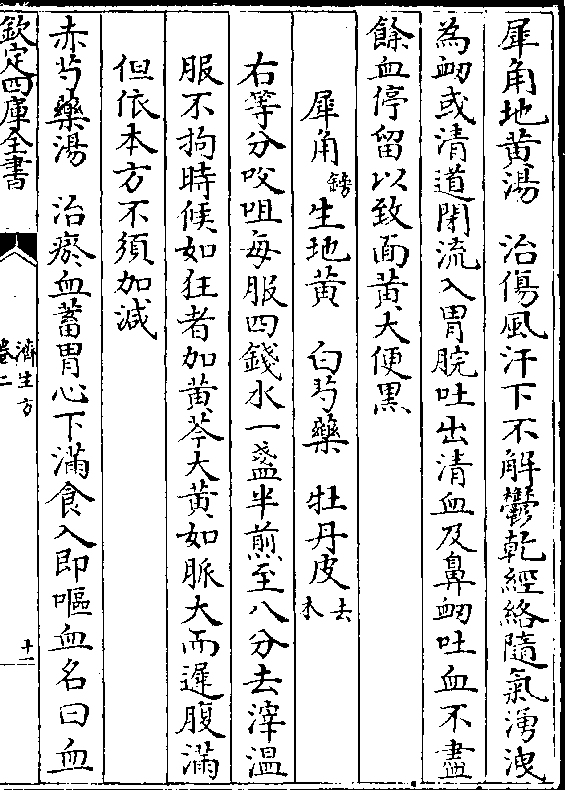 犀角地黄湯　治傷風汗下不解鬱乾經絡隨氣湧洩
為衂或清道閉流入胃脘吐出清血及鼻衂吐血不盡
餘血停留以致面黄大便黒
犀角鎊　生地黄　白芍藥　牡丹皮去木
右等分㕮咀每服四錢水一盞半煎至八分去滓温
服不拘時候如狂者加黄芩大黄如脈大而遲腹滿
但依本方不須加减
赤芍藥湯　治瘀血蓄胃心下滿食入即嘔血名曰血
欽定四庫全書
濟生方
卷二
十一